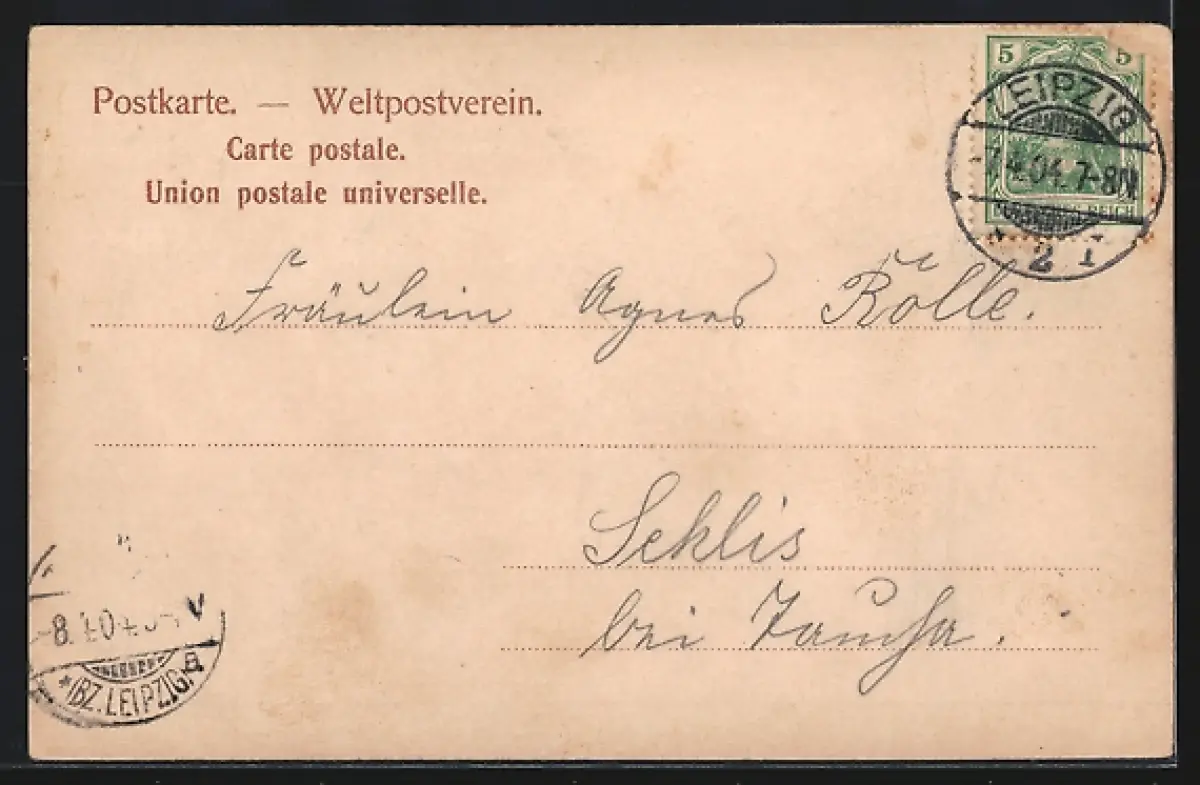 Postkarte. — Weltpostverein.
Carte postale.
Union postale universelle.
5 5
LEIPZIG
-7.4.04. 7-8N
REICH
2 I
Fräulein Agnes Rolle.
Seklis
bei Taucha.
-8. 4.04. V
*(BZ. LEIPZIG) a